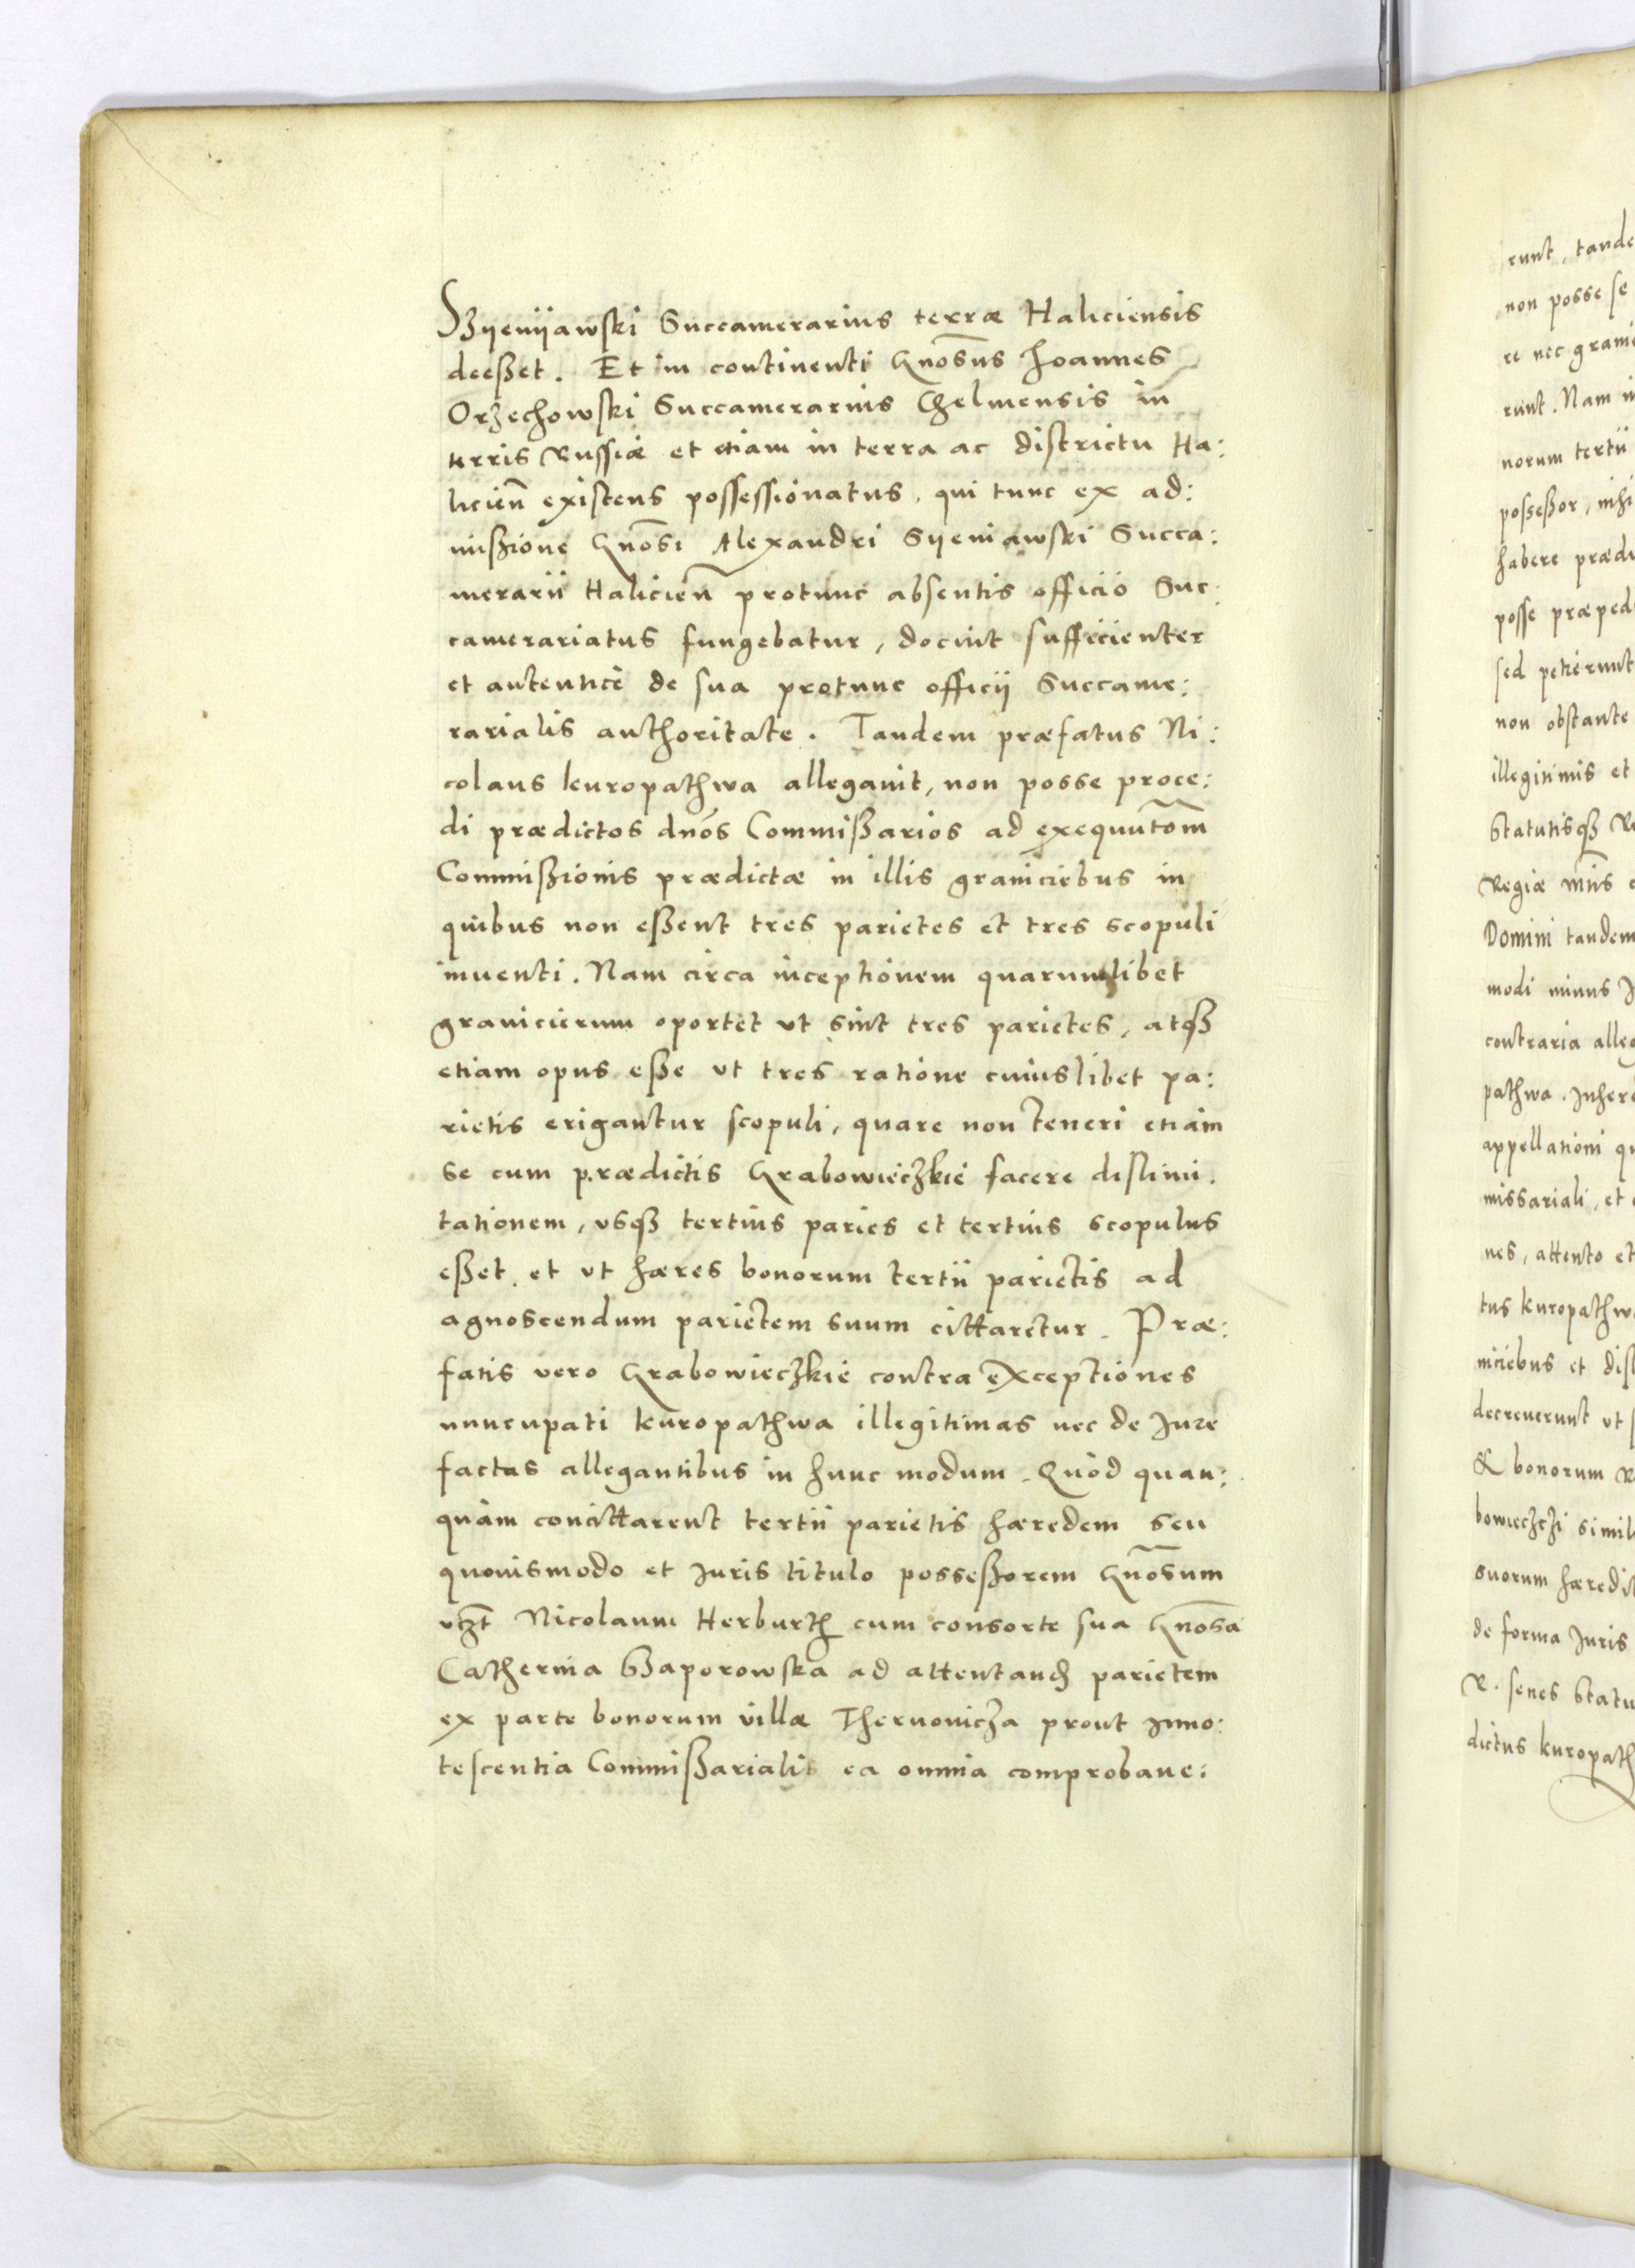 Szyenijawski Succamerarius terræ Haliciensis
deeßet. Et in continenti Gnōsus Joannes
Orzechowski Succamerarius Chelmensis in
terris Russiæ et etiam in terra ac districtu Ha:
licieñ existens possessionatus, qui tunc ex ad:
mißione Gnōsi Alexandri Syeniawski Succa:
merarii Halicieñ protunc absentis officio Suc:
camerariatus fungebatur, docuit sufficienter
et autenticè de sua protunc officij Succame:
rarialis authoritate. Tandem præfatus Ni:
colaus Kuropathwa allegauit, non posse proce:
di prædictos dnōs Commißarios ad exequutōm
Commißionis prædictæ in illis graniciebus in
quibus non eßent tres parietes et tres scopuli
inuenti. Nam circa inceptionem quarumlibet
granicierum oportet vt sint tres parietes, atqꝫ
etiam opus eße vt tres ratione cuiuslibet pa:
rietis erigantur scopuli, quare non teneri etiam
se cum prædictis Grabowieczkie facere dislimi.
tationem, vsqꝫ tertius paries et tertius scopulus
eßet, et vt hæres bonorum tertii parietis ad
agnoscendum parietem suum cittaretur. Præ:
fatis vero Grabowieczkie contra exceptiones
nuncupati Kuropathwa illegitimas nec de Jure
factas allegantibus in hunc modum. Quòd quan:
quàm concittarent tertii parietis hæredem seu
quouismodo et Juris titulo posseßorem Gnōsum
vtꝫt Nicolaum Herburth cum consorte sua Gnōsa
Catherina Szaporowska ad attentanđ parietem
ex parte bonorum villæ Theruonicza prout Inno:
tescentia Commißarialis ea omnia comprobaue:
runt, tande
non posse se
re nec grani
runt. Nam in
norum tertii
poseßor, nihi
habere prædi
posse præpedi
sed petierunt
non obstante
illegitimis et
Statutisqꝫ Re
Regiæ Mtis c
Domini tandem
modi minus J
contraria alleg
pathwa. Inhere
appellationi qu
missariali, et
nes, attento et
tus Kuropathwa
niciebus et disl
decreuerunt vt
& bonorum R
bowieczczi simil
suorum hæredit
de forma Juris
R. senes Statu
dictus Kuropath